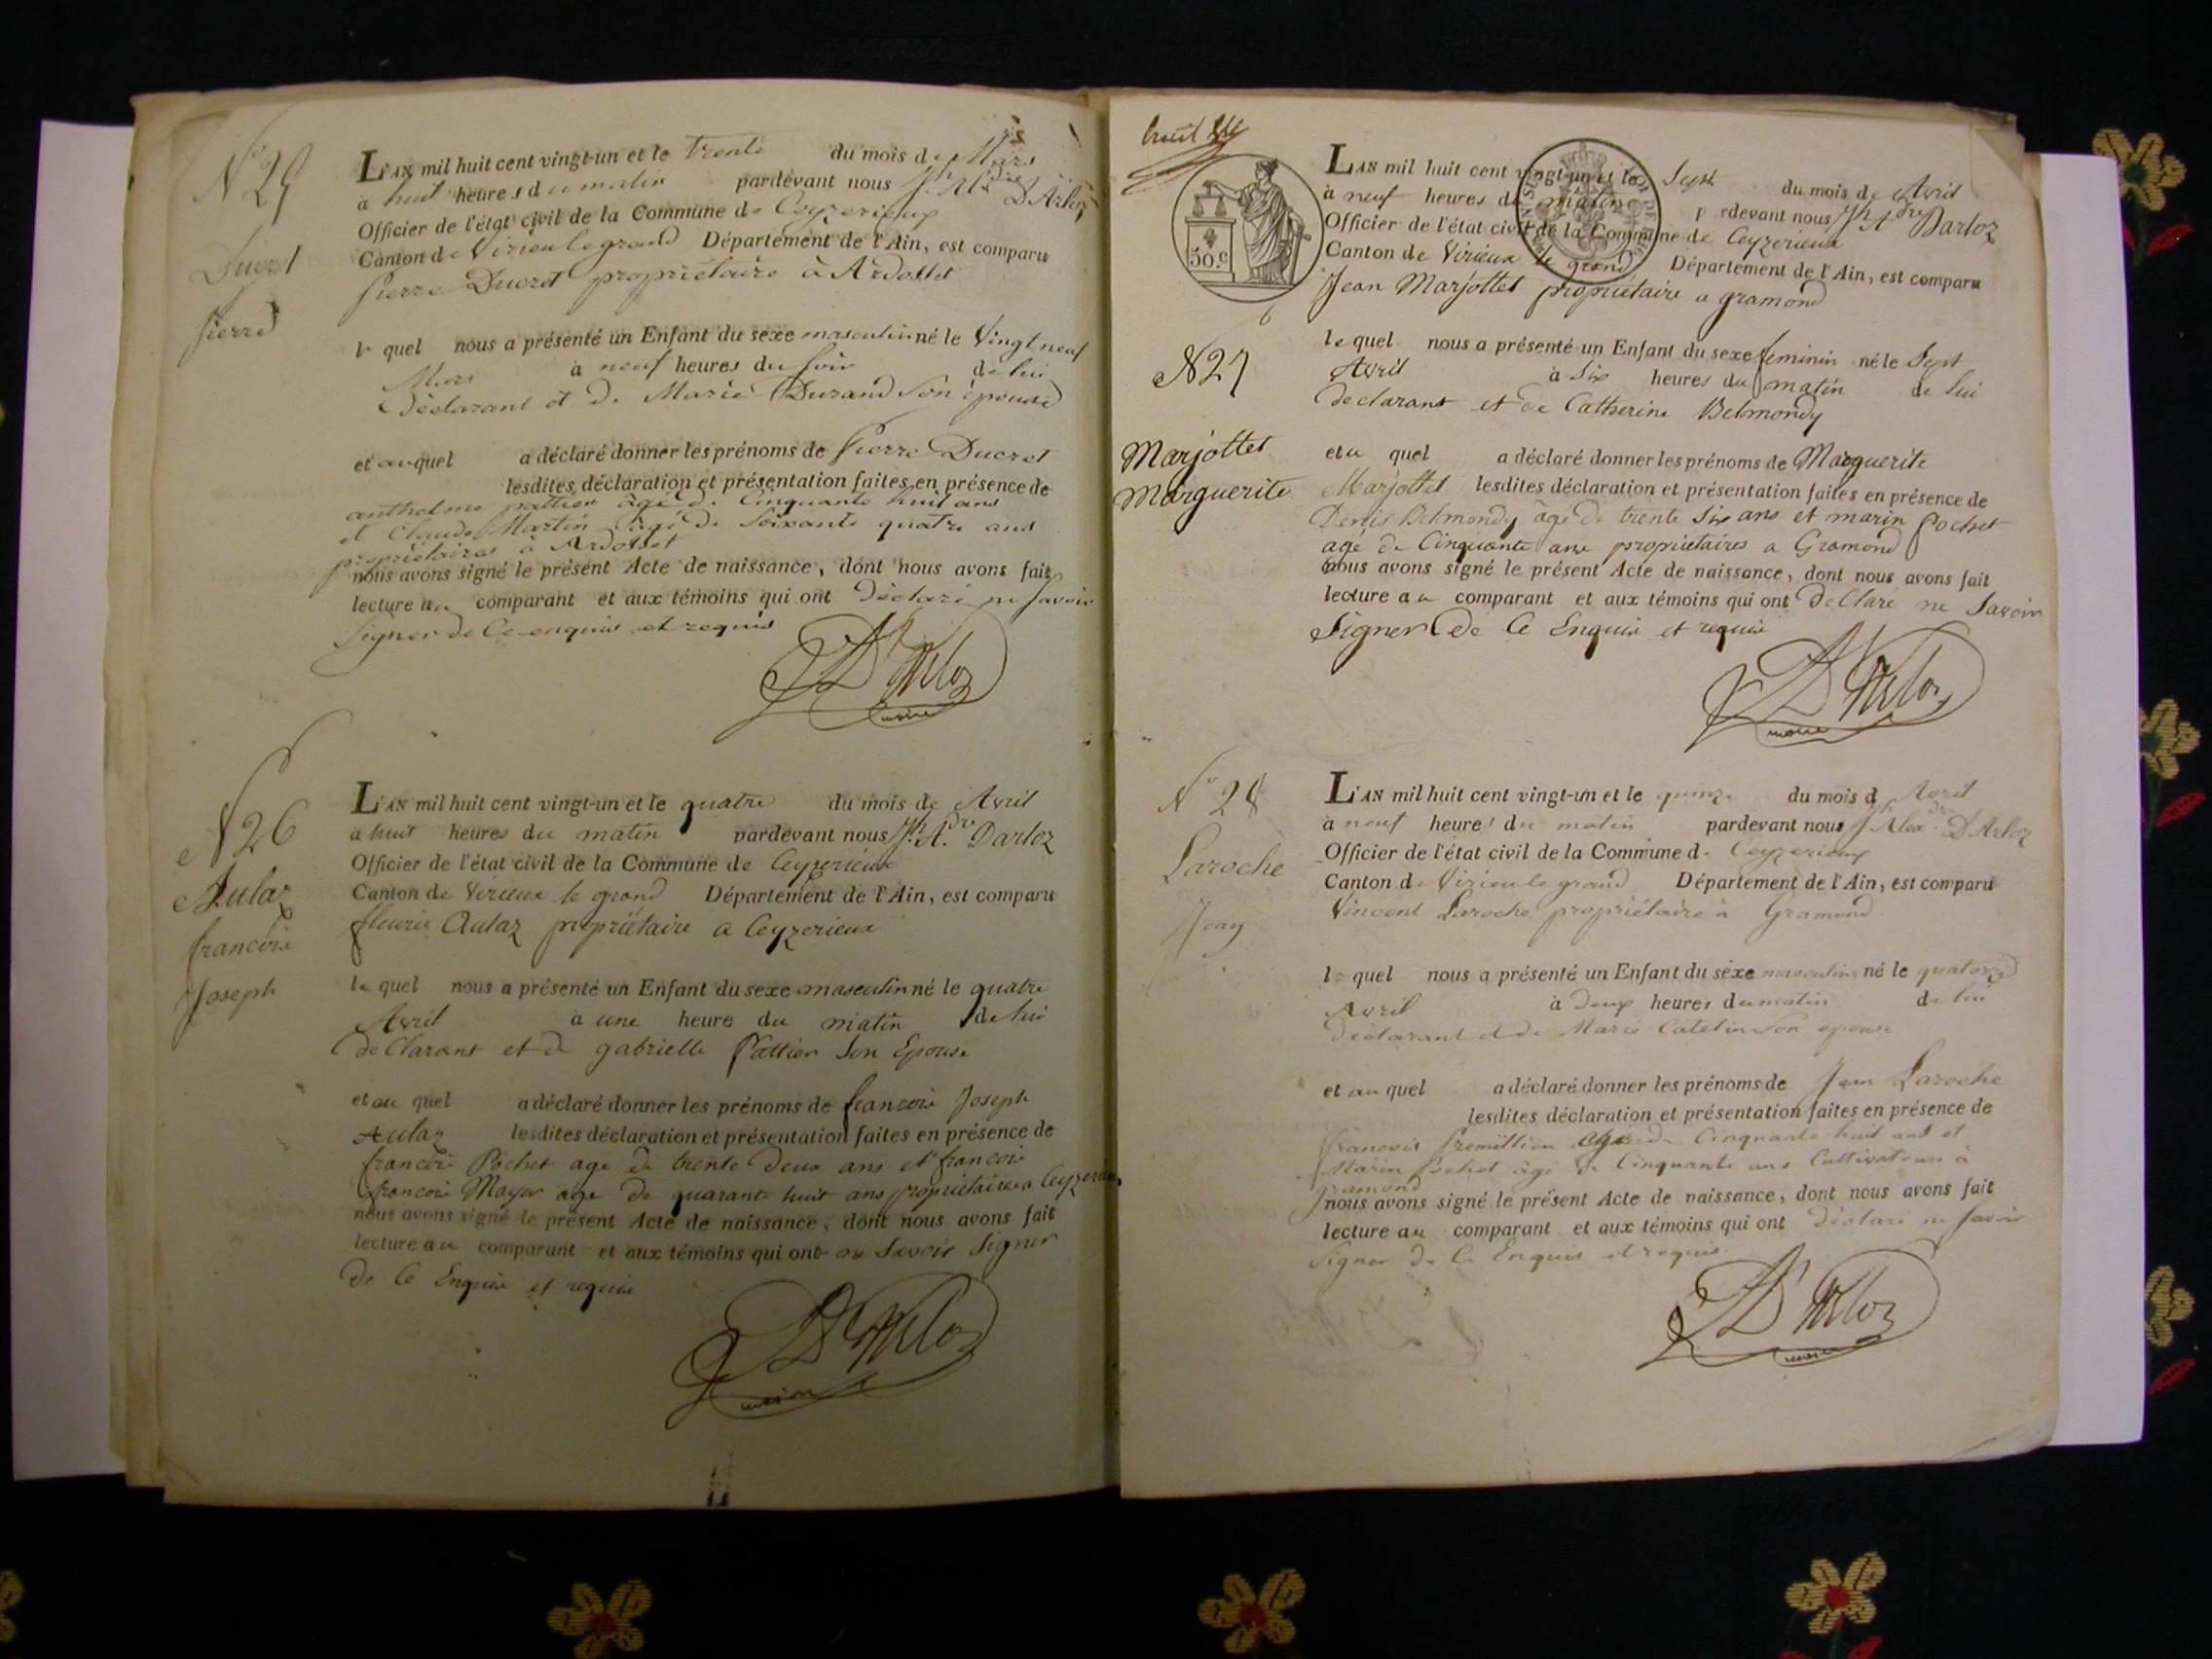 N° 25
Ducret
Pierre
L'AN mil huit cent vingt-un et le trente du mois de Mars
a huit heures du matin pardevant nous Jh. Aldre D'Arloz
Officier de l'état civil de la Commune de Ceyzerieux
Canton de Virieu le grand Département de l'Ain, est comparu
pierre Ducret propriétaire à Ardosset
le quel nous a présenté un Enfant du sexe masculin né le Vingt neuf
Mars à neuf heures du soir de lui
déclarant et de Marie Durand son épouse
et auquel a déclaré donner les prénoms de Pierre Ducret
lesdites déclaration et présentation faites en présence de
anthelme pattier âgé de Cinquante huit ans
et Claude Martin âgé de soixante quatre ans
propriétaires à Ardosset
nous avons signé le présent Acte de naissance, dont nous avons fait
lecture au comparant et aux témoins qui ont déclaré ne savoir
signer de Ce enquis et requis
D'Arloz
maire
N 26
Aulaz
francois
Joseph
L'AN mil huit cent vingt-un et le quatre du mois de Avril
a huit heures du matin pardevant nous Jh. A.dre Darloz
Officier de l'état civil de la Commune de Ceyzerieux
Canton de Virieux le grand Département de l'Ain, est comparu
fleurie Aulaz propriétaire a Ceyzerieux
le quel nous a présenté un Enfant du sexe masculin né le quatre
Avril à une heure du matin de lui
declarant et de gabrielle Pattier son Epouse
et au quel a déclaré donner les prénoms de francois Joseph
Aulaz lesdites déclaration et présentation faites en présence de
francois Pochet agé de trente deux ans et francois
francois Mayer agé de quarante huit ans propriétaires a
nous avons signé le présent Acte de naissance, dont nous avons fait
lecture au comparant et aux témoins qui ont ne Savoir Signer
de Ce Enquis et requis
D'Arloz
maire
50.c
N 27
Marjottet
Marguerite
L'AN mil huit cent vingt-un et le Sept du mois de Avril
à neuf heures du matin pardevant nous Jh Adre Darloz
Officier de l'état civil de la Commune de Ceyzerieux
Canton de Virieux le grand Département de l'Ain, est comparu
Jean Marjottet propriétaire a gramond
le quel nous a présenté un Enfant du sexe feminin né le Sept
Avril à Six heures du matin de lui
declarant et de Catherine Belmondy
et au quel a déclaré donner les prénoms de Marguerite
Marjottet lesdites déclaration et présentation faites en présence de
Denis Belmondy âgé de trente six ans et marin Pochet
agé de Cinquante ans propriétaires a Gramond
nous avons signé le présent Acte de naissance, dont nous avons fait
lecture au comparant et aux témoins qui ont declaré ne Savoir
Signer de Ce Enquis et requis
D'Arloz
maire
N° 28
Laroche
Jean
L'AN mil huit cent vingt-un et le quinze du mois d Avril
à neuf heures du matin pardevant nous Jh Alex.dre D'Arloz
Officier de l'état civil de la Commune de Ceyzerieux
Canton de Virieu le grand Département de l'Ain, est comparu
Vincent Laroche propriétaire à Gramond
le quel nous a présenté un Enfant du sexe masculin né le quatorze
Avril à deux heures du matin de lui
déclarant et de Marie Catelin son epouse
et au quel a déclaré donner les prénoms de Jean Laroche
lesdites déclaration et présentation faites en présence de
francois fremillion agé de Cinquante huit ans et
Marin Pochet âgé de Cinquante ans Cultivateurs à
gramond
nous avons signé le présent Acte de naissance, dont nous avons fait
lecture au comparant et aux témoins qui ont déclaré ne savoir
Signer de Ce Enquis et requis
D'Arloz
maire